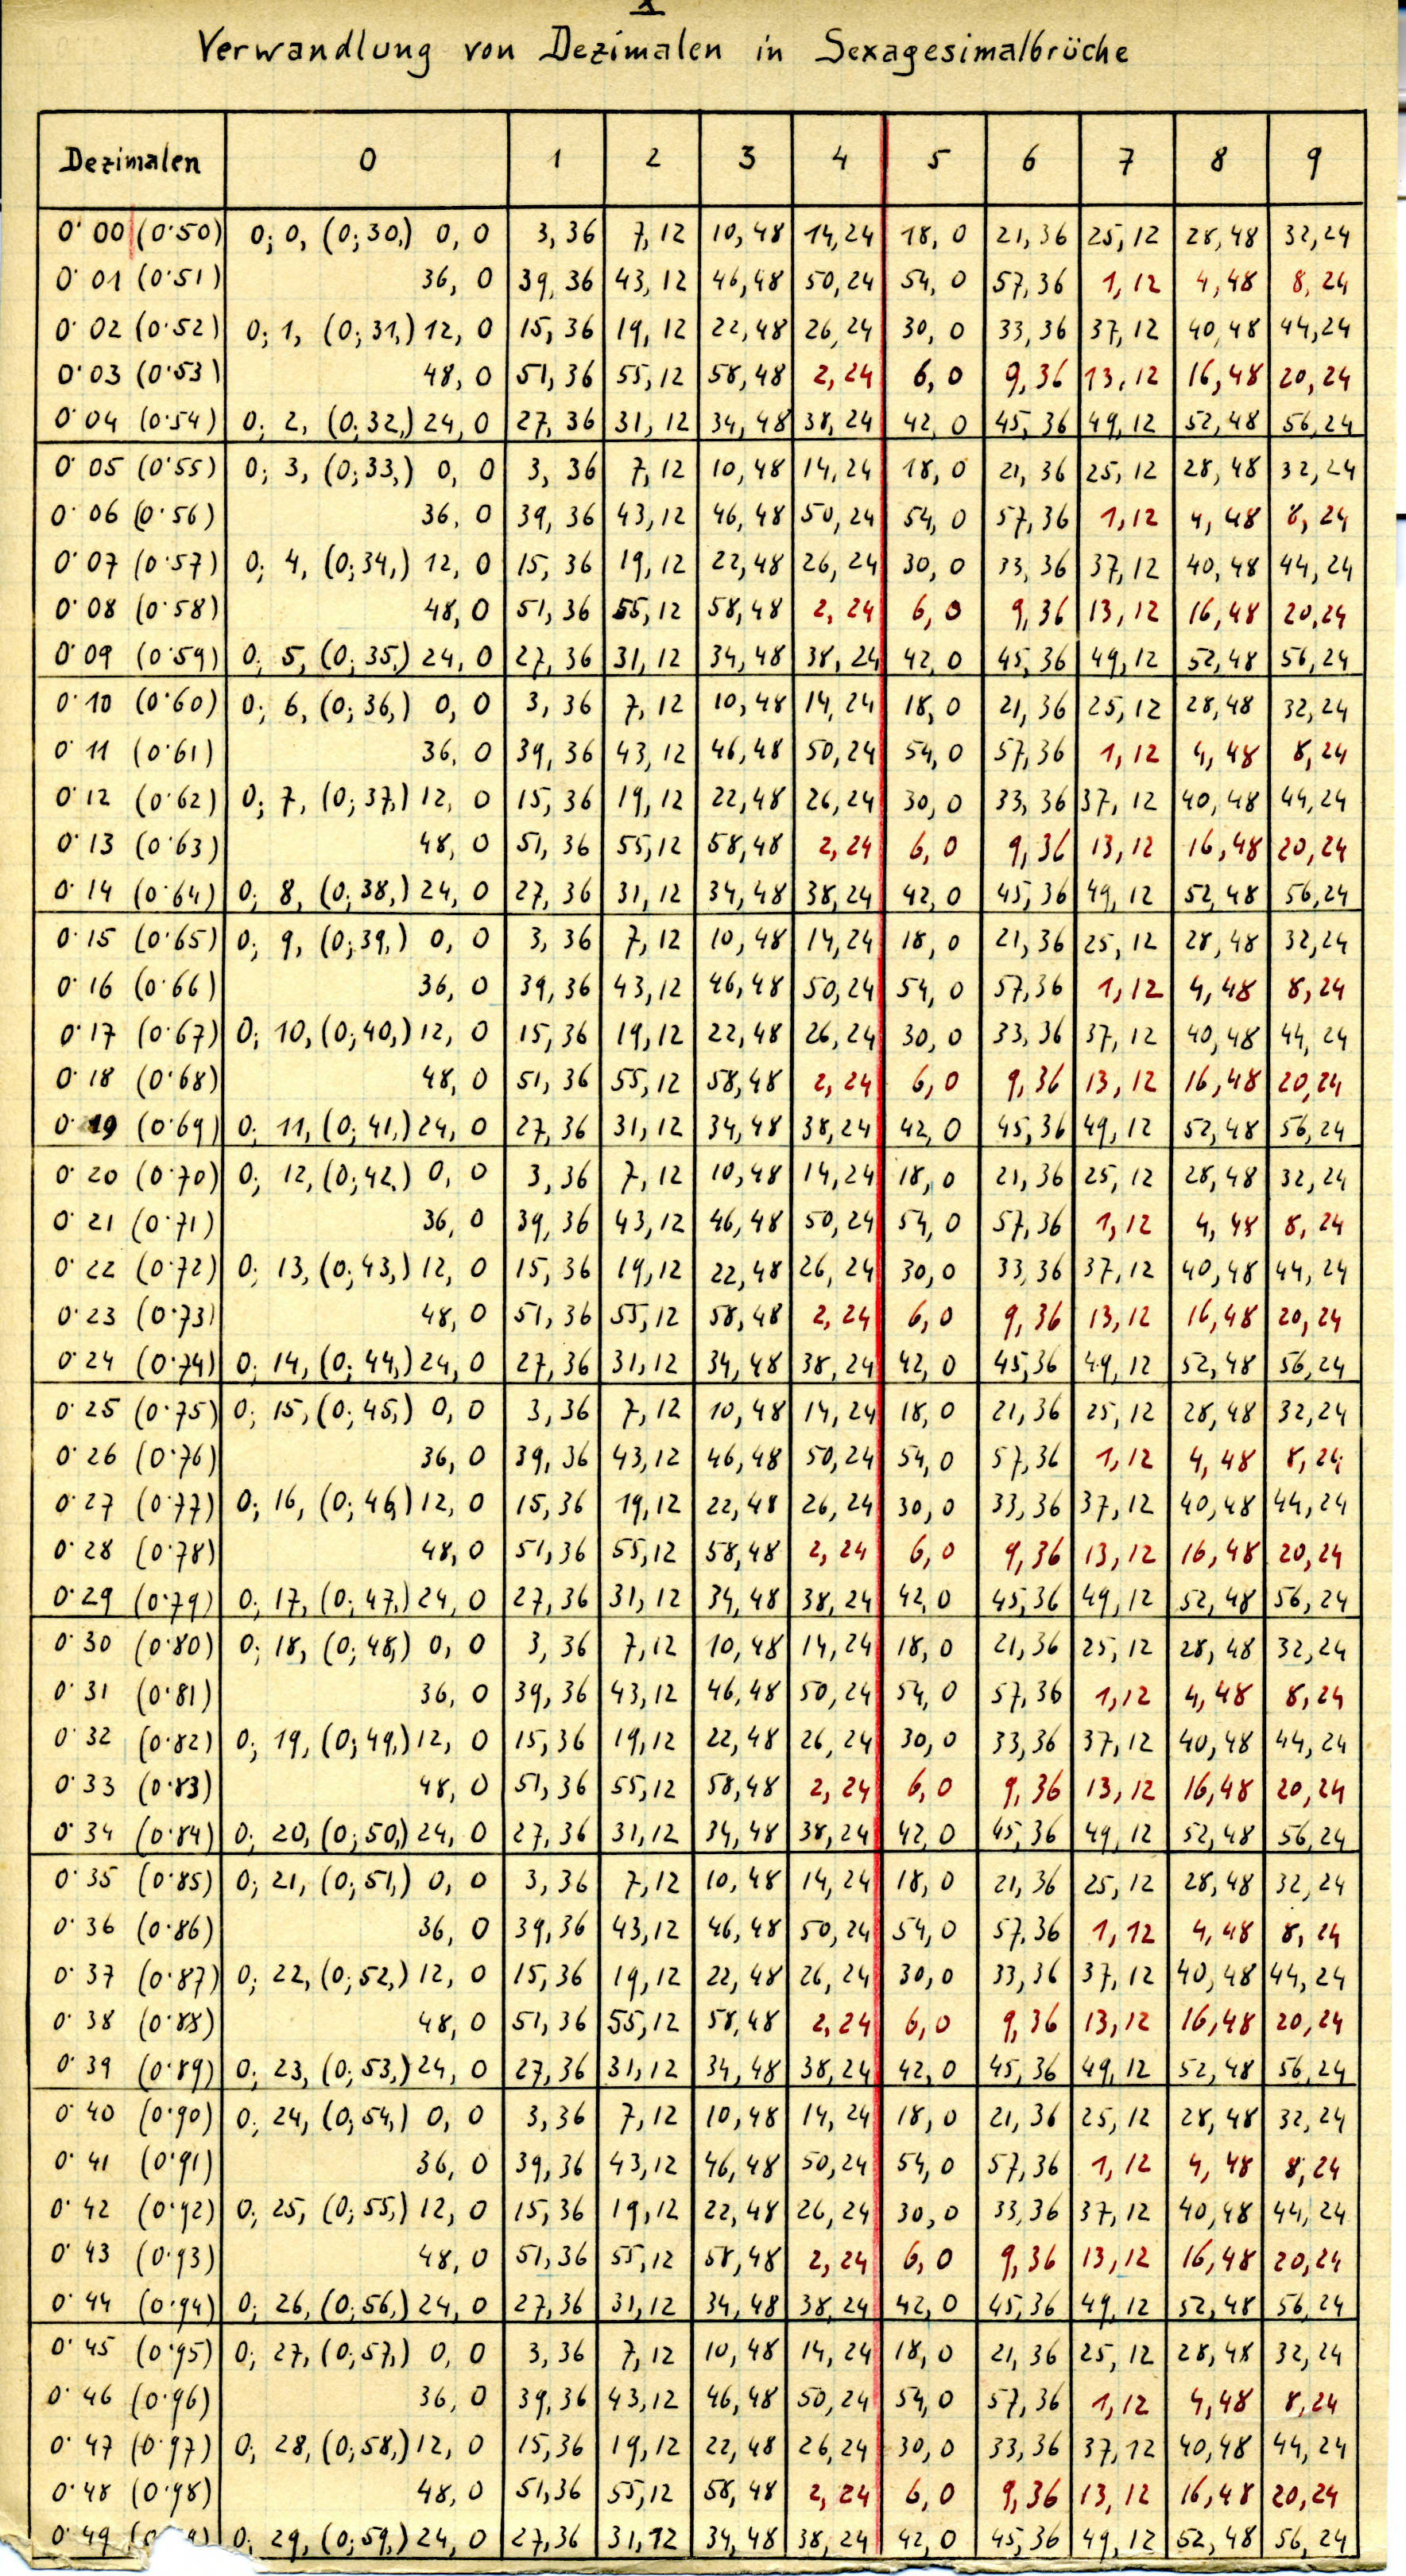 X
Verwandlung von Dezimalen in Sexagesimalbrüche
Dezimalen 0 1 2 3 4 5 6 7 8 9
0·00 (0·50) 0; 0, (0;30,) 0, 0 3, 36 7, 12 10, 48 14, 24 18, 0 21, 36 25, 12 28, 48 32, 24
0·01 (0·51) 36, 0 39, 36 43, 12 46, 48 50, 24 54, 0 57, 36 1, 12 4, 48 8, 24
0·02 (0·52) 0; 1, (0;31,) 12, 0 15, 36 19, 12 22, 48 26, 24 30, 0 33, 36 37, 12 40, 48 44, 24
0·03 (0·53) 48, 0 51, 36 55, 12 58, 48 2, 24 6, 0 9, 36 13, 12 16, 48 20, 24
0·04 (0·54) 0; 2, (0;32,) 24, 0 27, 36 31, 12 34, 48 38, 24 42, 0 45, 36 49, 12 52, 48 56, 24
0·05 (0·55) 0; 3, (0;33,) 0, 0 3, 36 7, 12 10, 48 14, 24 18, 0 21, 36 25, 12 28, 48 32, 24
0·06 (0·56) 36, 0 39, 36 43, 12 46, 48 50, 24 54, 0 57, 36 1, 12 4, 48 8, 24
0·07 (0·57) 0; 4, (0;34,) 12, 0 15, 36 19, 12 22, 48 26, 24 30, 0 33, 36 37, 12 40, 48 44, 24
0·08 (0·58) 48, 0 51, 36 55, 12 58, 48 2, 24 6, 0 9, 36 13, 12 16, 48 20, 24
0·09 (0·59) 0; 5, (0;35,) 24, 0 27, 36 31, 12 34, 48 38, 24 42, 0 45, 36 49, 12 52, 48 56, 24
0·10 (0·60) 0; 6, (0;36,) 0, 0 3, 36 7, 12 10, 48 14, 24 18, 0 21, 36 25, 12 28, 48 32, 24
0·11 (0·61) 36, 0 39, 36 43, 12 46, 48 50, 24 54, 0 57, 36 1, 12 4, 48 8, 24
0·12 (0·62) 0; 7, (0;37,) 12, 0 15, 36 19, 12 22, 48 26, 24 30, 0 33, 36 37, 12 40, 48 44, 24
0·13 (0·63) 48, 0 51, 36 55, 12 58, 48 2, 24 6, 0 9, 36 13, 12 16, 48 20, 24
0·14 (0·64) 0; 8, (0;38,) 24, 0 27, 36 31, 12 34, 48 38, 24 42, 0 45, 36 49, 12 52, 48 56, 24
0·15 (0·65) 0; 9, (0;39,) 0, 0 3, 36 7, 12 10, 48 14, 24 18, 0 21, 36 25, 12 28, 48 32, 24
0·16 (0·66) 36, 0 39, 36 43, 12 46, 48 50, 24 54, 0 57, 36 1, 12 4, 48 8, 24
0·17 (0·67) 0; 10, (0;40,) 12, 0 15, 36 19, 12 22, 48 26, 24 30, 0 33, 36 37, 12 40, 48 44, 24
0·18 (0·68) 48, 0 51, 36 55, 12 58, 48 2, 24 6, 0 9, 36 13, 12 16, 48 20, 24
0·19 (0·69) 0; 11, (0;41,) 24, 0 27, 36 31, 12 34, 48 38, 24 42, 0 45, 36 49, 12 52, 48 56, 24
0·20 (0·70) 0; 12, (0;42,) 0, 0 3, 36 7, 12 10, 48 14, 24 18, 0 21, 36 25, 12 28, 48 32, 24
0·21 (0·71) 36, 0 39, 36 43, 12 46, 48 50, 24 54, 0 57, 36 1, 12 4, 48 8, 24
0·22 (0·72) 0; 13, (0;43,) 12, 0 15, 36 19, 12 22, 48 26, 24 30, 0 33, 36 37, 12 40, 48 44, 24
0·23 (0·73) 48, 0 51, 36 55, 12 58, 48 2, 24 6, 0 9, 36 13, 12 16, 48 20, 24
0·24 (0·74) 0; 14, (0;44,) 24, 0 27, 36 31, 12 34, 48 38, 24 42, 0 45, 36 49, 12 52, 48 56, 24
0·25 (0·75) 0; 15, (0;45,) 0, 0 3, 36 7, 12 10, 48 14, 24 18, 0 21, 36 25, 12 28, 48 32, 24
0·26 (0·76) 36, 0 39, 36 43, 12 46, 48 50, 24 54, 0 57, 36 1, 12 4, 48 8, 24
0·27 (0·77) 0; 16, (0;46,) 12, 0 15, 36 19, 12 22, 48 26, 24 30, 0 33, 36 37, 12 40, 48 44, 24
0·28 (0·78) 48, 0 51, 36 55, 12 58, 48 2, 24 6, 0 9, 36 13, 12 16, 48 20, 24
0·29 (0·79) 0; 17, (0;47,) 24, 0 27, 36 31, 12 34, 48 38, 24 42, 0 45, 36 49, 12 52, 48 56, 24
0·30 (0·80) 0; 18, (0;48,) 0, 0 3, 36 7, 12 10, 48 14, 24 18, 0 21, 36 25, 12 28, 48 32, 24
0·31 (0·81) 36, 0 39, 36 43, 12 46, 48 50, 24 54, 0 57, 36 1, 12 4, 48 8, 24
0·32 (0·82) 0; 19, (0;49,) 12, 0 15, 36 19, 12 22, 48 26, 24 30, 0 33, 36 37, 12 40, 48 44, 24
0·33 (0·83) 48, 0 51, 36 55, 12 58, 48 2, 24 6, 0 9, 36 13, 12 16, 48 20, 24
0·34 (0·84) 0; 20, (0;50,) 24, 0 27, 36 31, 12 34, 48 38, 24 42, 0 45, 36 49, 12 52, 48 56, 24
0·35 (0·85) 0; 21, (0;51,) 0, 0 3, 36 7, 12 10, 48 14, 24 18, 0 21, 36 25, 12 28, 48 32, 24
0·36 (0·86) 36, 0 39, 36 43, 12 46, 48 50, 24 54, 0 57, 36 1, 12 4, 48 8, 24
0·37 (0·87) 0; 22, (0;52,) 12, 0 15, 36 19, 12 22, 48 26, 24 30, 0 33, 36 37, 12 40, 48 44, 24
0·38 (0·88) 48, 0 51, 36 55, 12 58, 48 2, 24 6, 0 9, 36 13, 12 16, 48 20, 24
0·39 (0·89) 0; 23, (0;53,) 24, 0 27, 36 31, 12 34, 48 38, 24 42, 0 45, 36 49, 12 52, 48 56, 24
0·40 (0·90) 0; 24, (0;54,) 0, 0 3, 36 7, 12 10, 48 14, 24 18, 0 21, 36 25, 12 28, 48 32, 24
0·41 (0·91) 36, 0 39, 36 43, 12 46, 48 50, 24 54, 0 57, 36 1, 12 4, 48 8, 24
0·42 (0·92) 0; 25, (0;55,) 12, 0 15, 36 19, 12 22, 48 26, 24 30, 0 33, 36 37, 12 40, 48 44, 24
0·43 (0·93) 48, 0 51, 36 55, 12 58, 48 2, 24 6, 0 9, 36 13, 12 16, 48 20, 24
0·44 (0·94) 0; 26, (0;56,) 24, 0 27, 36 31, 12 34, 48 38, 24 42, 0 45, 36 49, 12 52, 48 56, 24
0·45 (0·95) 0; 27, (0;57,) 0, 0 3, 36 7, 12 10, 48 14, 24 18, 0 21, 36 25, 12 28, 48 32, 24
0·46 (0·96) 36, 0 39, 36 43, 12 46, 48 50, 24 54, 0 57, 36 1, 12 4, 48 8, 24
0·47 (0·97) 0; 28, (0;58,) 12, 0 15, 36 19, 12 22, 48 26, 24 30, 0 33, 36 37, 12 40, 48 44, 24
0·48 (0·98) 48, 0 51, 36 55, 12 58, 48 2, 24 6, 0 9, 36 13, 12 16, 48 20, 24
0·49 0; 29, (0;59,) 24, 0 27, 36 31, 12 34, 48 38, 24 42, 0 45, 36 49, 12 52, 48 56, 24